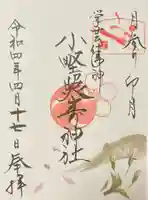 月参り 卯月
学芸の神
小野照崎神社
令和四年四月十七日 奉拝